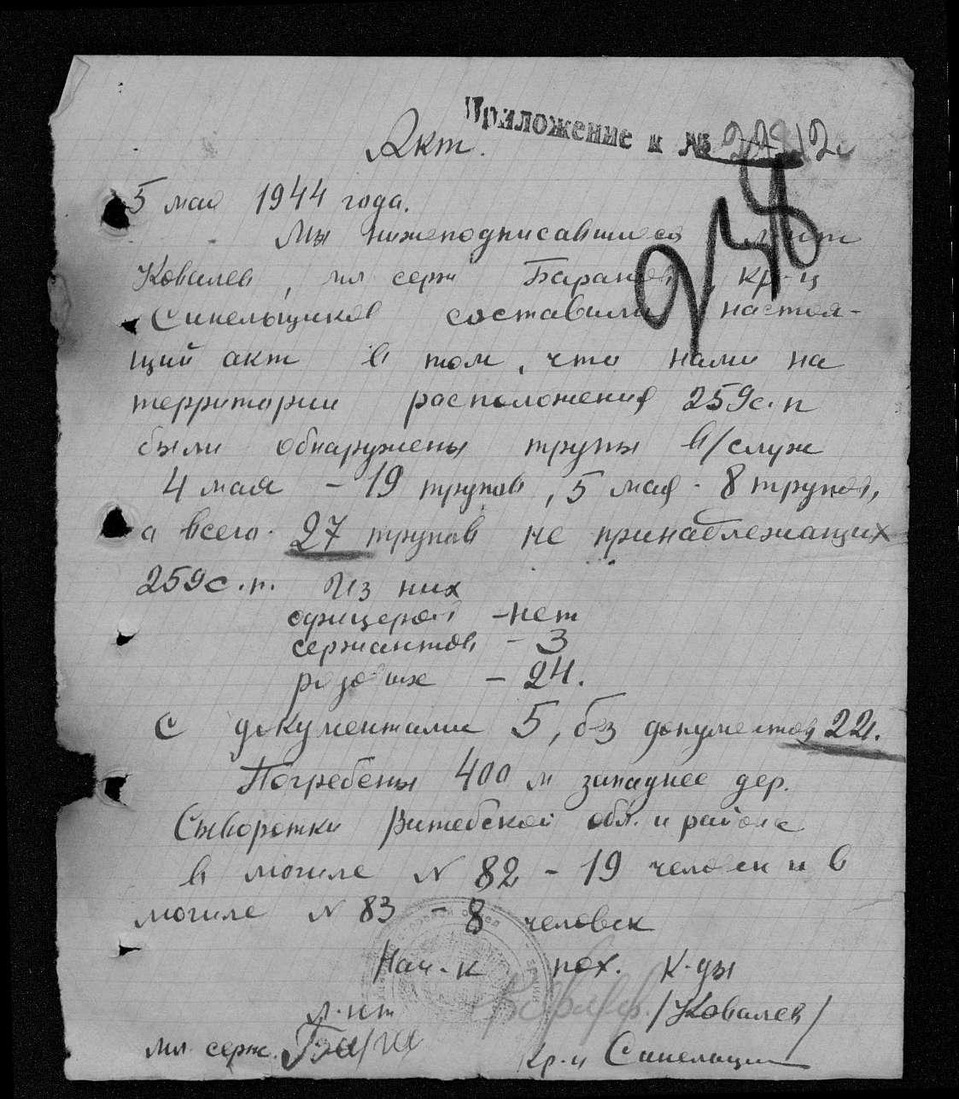 Приложение к №
Акт.
5 мая 1944 года.
Мы нижеподписавшиеся л-нт
Ковалев, мл серж Баранов, кр-ц
Синельщиков составили настоя-
щий акт в том, что нами на
территории расположения 259 с.п
были обнаружены трупы в/служ
4 мая - 19 трупов, 5 мая - 8 трупов,
а всего - 27 трупов не принадлежащих
259 с.п. Из них
офицеров - нет
сержантов - 3
рядовых - 24.
С документами 5, без документов 22.
Погребены 400 м западнее дер.
Сыворотки Витебской обл. и района
в могиле N 82 - 19 человек и в
могиле N 83 - 8 человек
Нач-к пох. к-ды
л-нт /Ковалев/
мл. серж. кр-ц